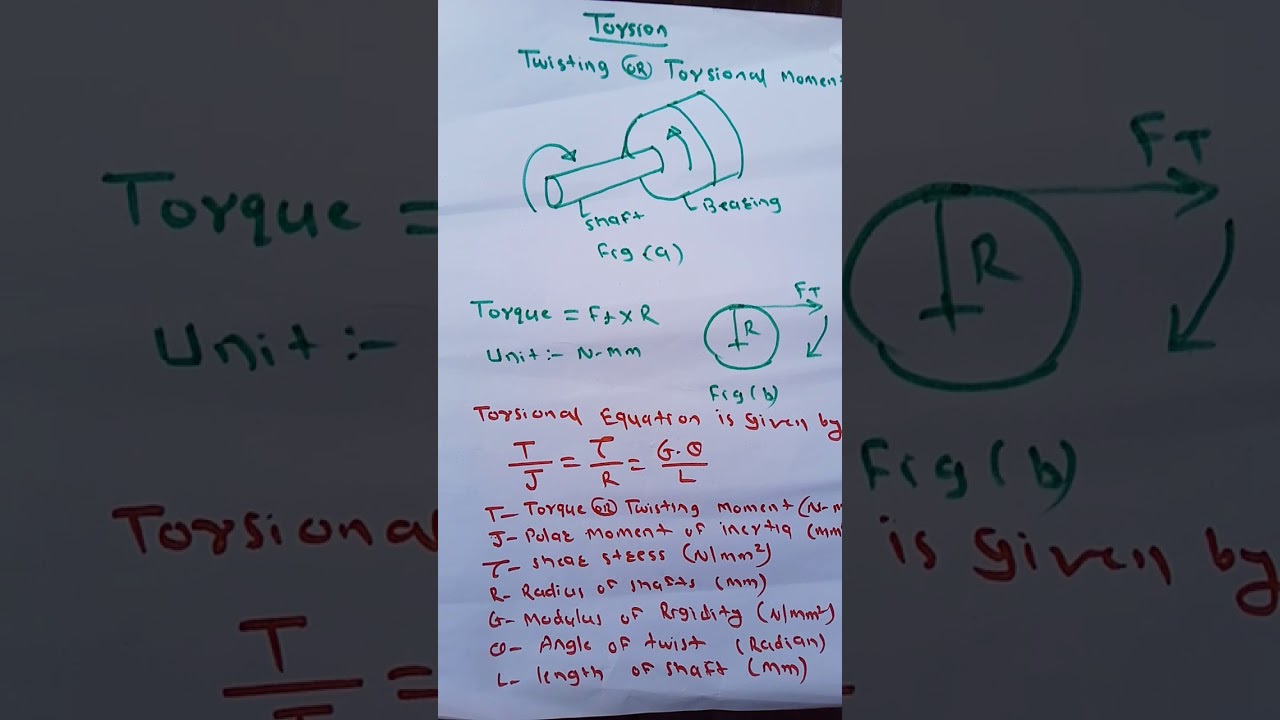 Torsion
Twisting OR Torsional Moment
shaft
Bearing
Fig (a)
Torque = Ft x R
FT
R
Unit :- N-mm
Fig (b)
Torsional Equation is given by
T/J = τ/R = G.θ/L
T- Torque OR Twisting Moment (N-m
J- Polar Moment of inertia (mm
τ- shear stress (N/mm²)
R- Radius of shafts (mm)
G- Modulus of Rigidity (N/mm²)
θ- Angle of twist (Radian)
L- length of shaft (mm)
Torque =
FT
R
Unit :-
Fig (b)
Torsional
is given by
T
=